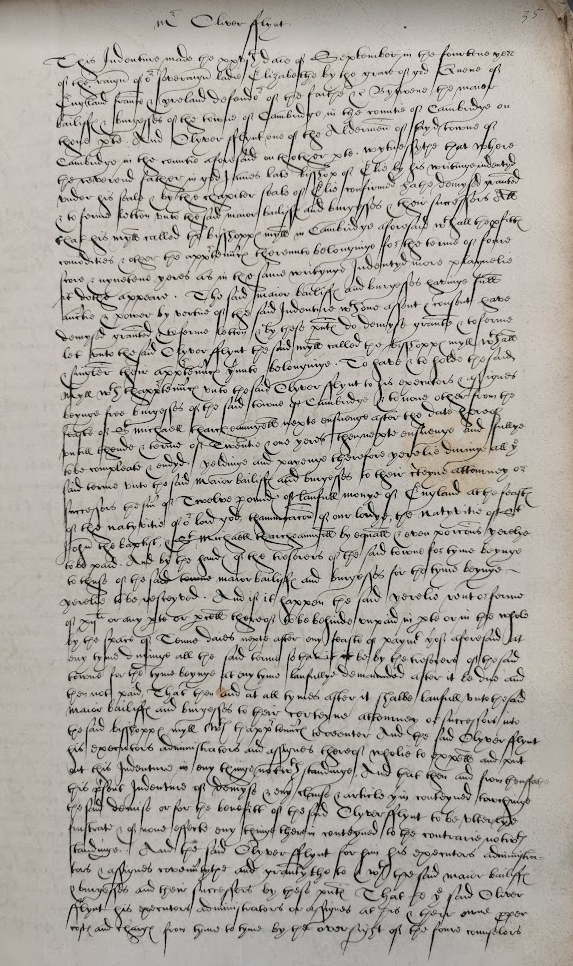 Mr Oliver fflynt
35
This Indenture made the daie of September in the fourtene yere
of the raign of or soveraign ladie Elizabethe by the grace of god Quene of
England ffrance & Ireland defendor of the faithe &c Bytwene the maior
bailiffs & burgesses of the towne of Cambridge in the countie of Cambridge on
thone pte And Olyver fflynt one of the Aldermen of the said towne of
Cambridge in the countie aforesaid on thother pte. Wytnessithe that where
the reverend father in god James late bisshop of Elie by his writinge indentyd
under his seale & by the chapiter seale of Elie confirmed hathe demysed graunted
& to ferme letton unto the said maior bailiffs and burgesses & their successors All
that his myll called the bisshopps myll in Cambridge aforesaid wth all the pfitts
comodities & other the apptenncs therunto belonginge for the terme of foure
score & nynetene yeres as in the same writynge Indentyd more playnelie
it dothe appeare. The said maior bailiffs and burgesses havinge full
aucthe & power by vertue of the said Indenture wth one assent & consent have
demysed graunted & to ferme letton & by these pnts do demyse graunte & to ferme
let unto the said Olyver fflynt the said myll called the bisshopps myll wth all
& singler their apptenncs thunto belonginge. To have & to holde the said
myll wth thapptenncs unto the said Olyver fflynt to his executors & assignes
beynge free burgesses of the said towne of Cambridge & to none other from the
feaste of St Michaell tharcheaungell nexte ensuenge after the date hereof
untill thende & terme of Twentie & one yeres then nexte ensuenge and fullye
to be compleate & endyd. yeldinge and payenge therefore yerelie duringe all ye
said terme unto the said maior bailiffs and burgesses to their certeyne attorney or
successors the sum of Twelve poundes of laufull monye of England at the feasts
of the natyvitie of or lord god thannunciacon of our ladye, the natyvitie of St
John the baptist & St Michaell tharcheaungell by equall & even porcons yerelye
to be paid. And by the hands of the tresorers of the said towne for tyme beynge
to thuse of the said maior bailiffs and burgesses for the tyme beynge
yerelie to be receyved. And if it happen the said yerelie rent or ferme
of xijli or any pte or pcell therof to be behinde unpaid in pte or in the whole
by the space of Tenne daies nexte after any feaste of paymt yrof aforesaid at
eny tyme duringe all the said terme so that it be by the tresorers of the said
towne for the tyme beynge at any tyme laufullye demaunded after it be due and
then not paid, That then and at all tymes after it shalbe laufull unto the said
maior bailiffs and burgesses to their certeyne attorney or successors into
the said bisshopps myll wth thapptenncs to reenter And the said Olyver fflynt
his executors administrators and assignes therof wholie to expell and put
out this Indenture in any thinge notwthstandinge. And that then and from thensforthe
this psent Indenture of demyse & eny clause & article yrin conteyned touchinge
the said demise or for the benefitt of the said Olyver fflynt to be utterlye
frustrate & of none effecte eny thinge therin conteyned to the contrarie notwth
standinge. And the said Olyver fflynt for him his executors administra
tors & assignes covenntythe and grauntythe to & wth the said maior bailiffs
& burgesses and their successors by these pnts That he ye said Oliver
fflynt his executors administrators or assignes at his & their owne pper
costs and charges from tyme to tyme by the oversight of the foure counselors